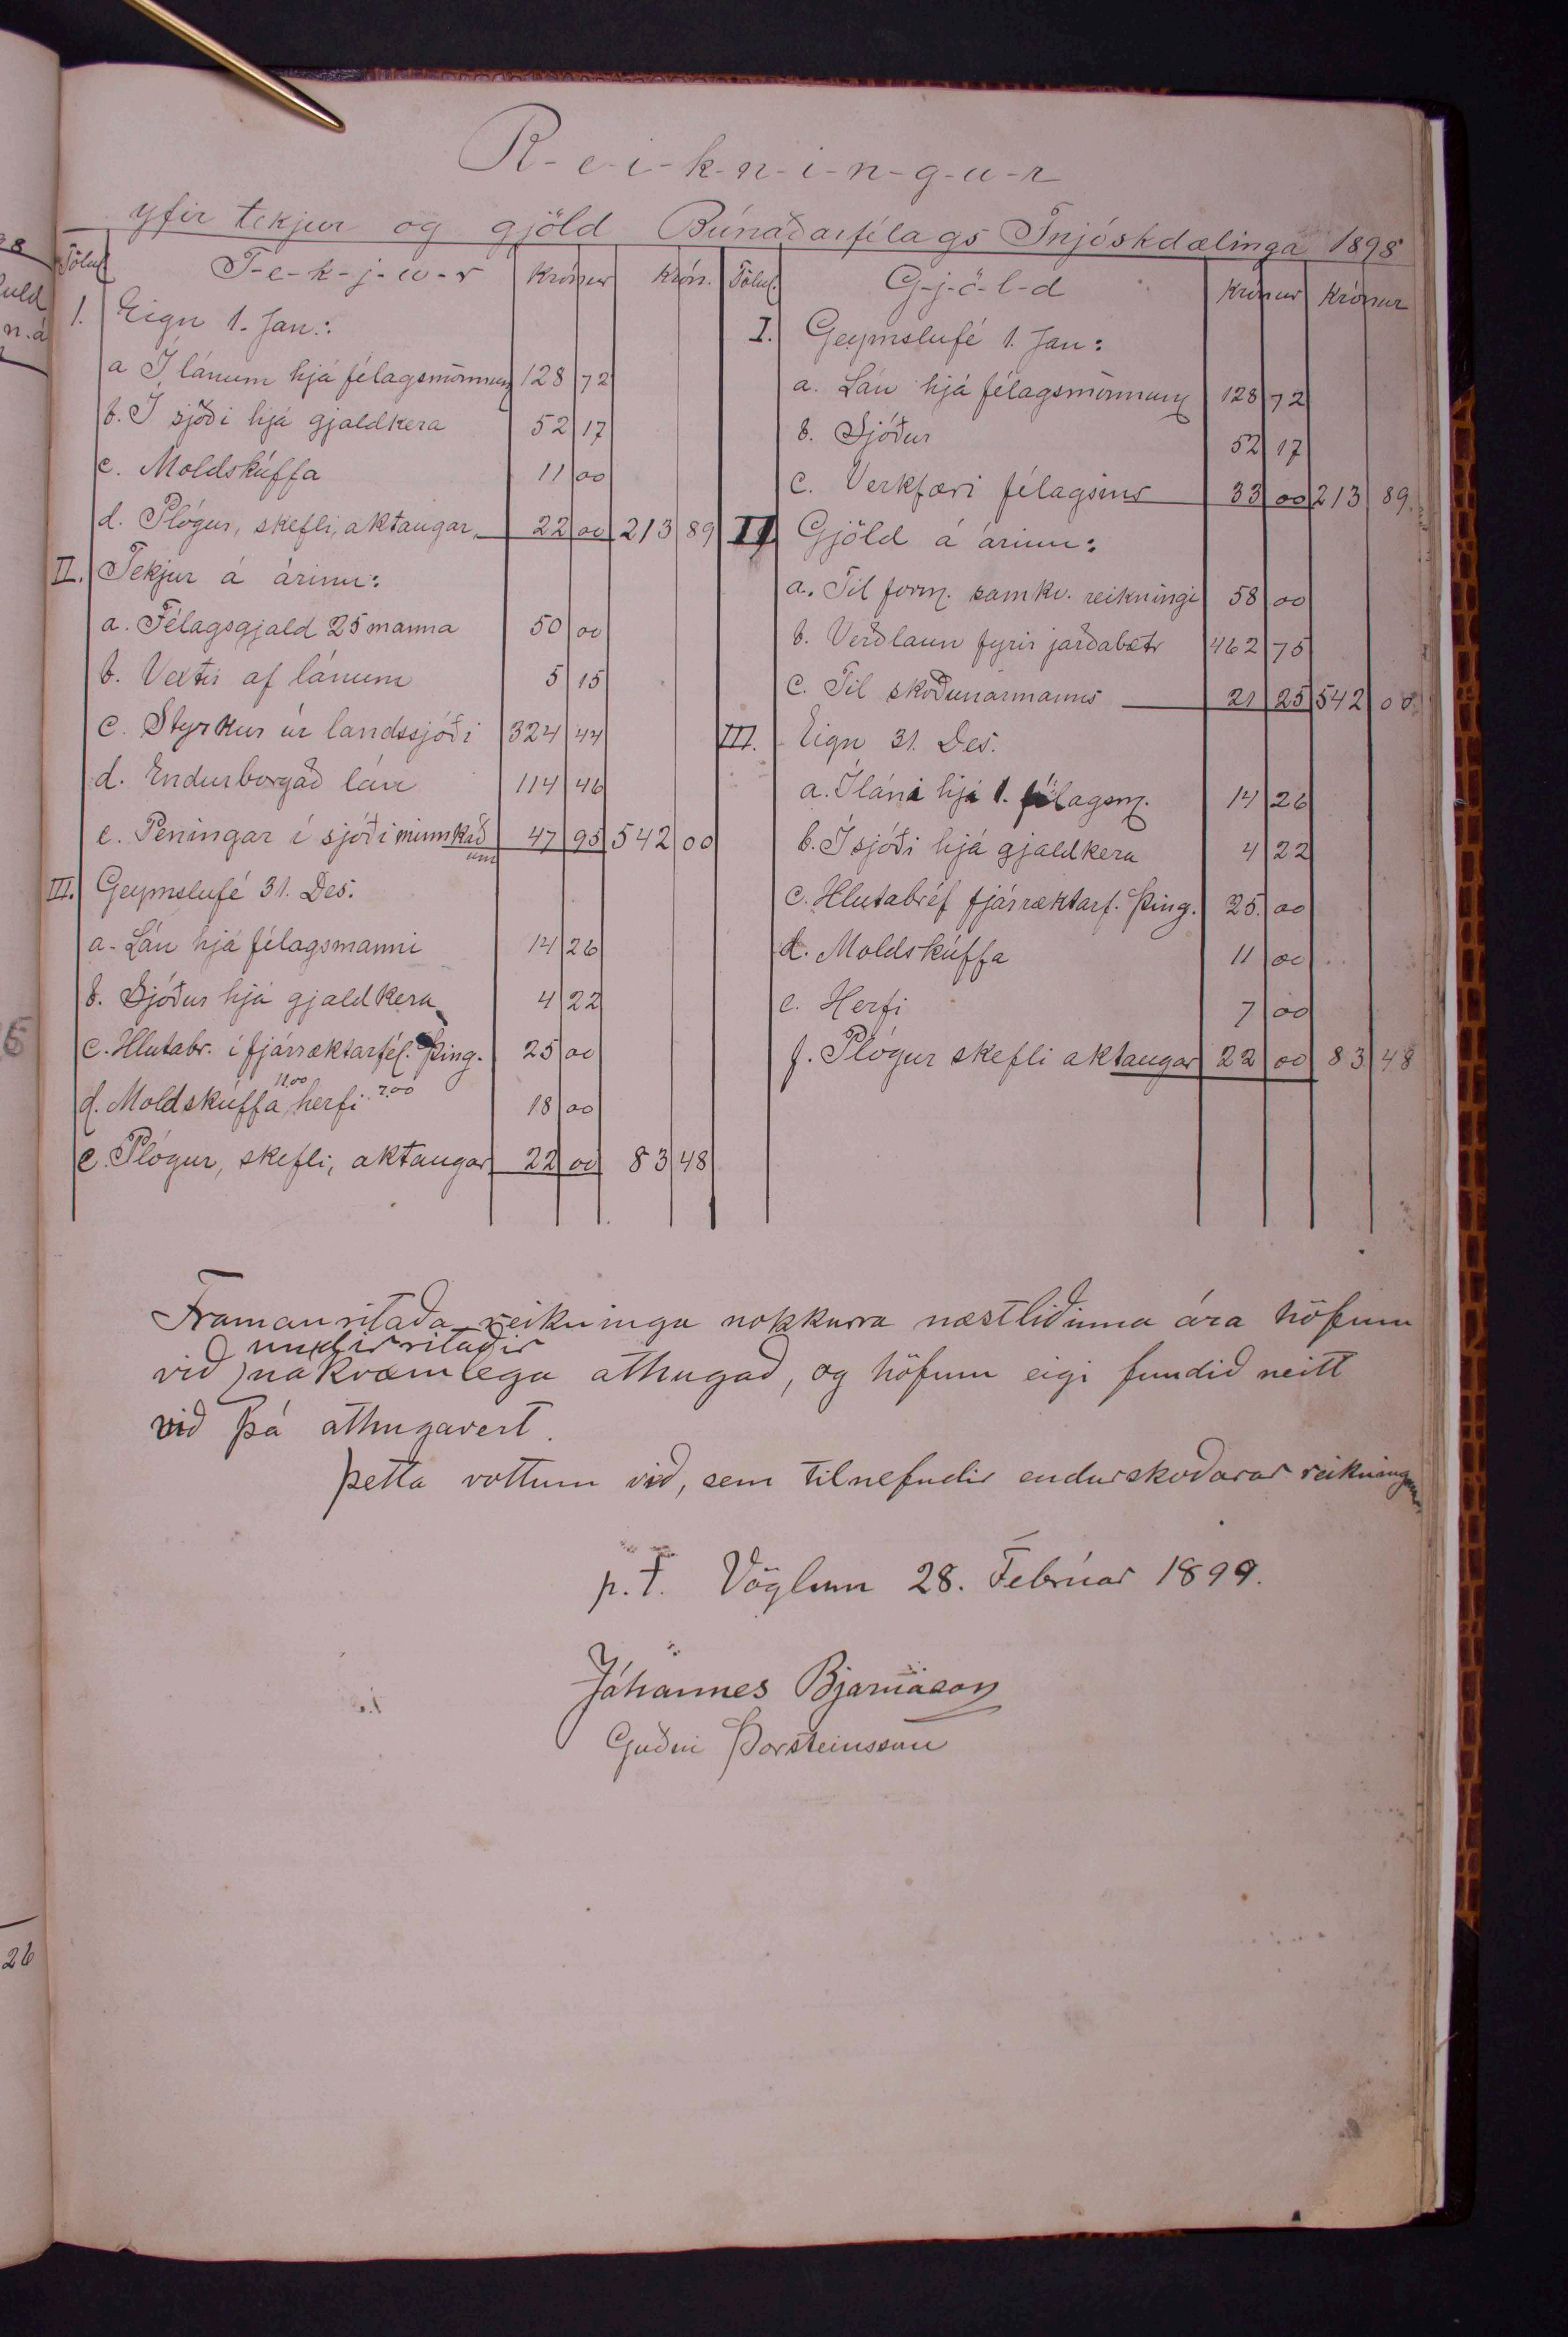 R-e-i-k-n-i-n-g-u-r
yfir tekjur og gjöld Búnaðarfélags Fnjóskdælinga 1898
Tölul. T-e-k-j-u-r Krónur Krón.
1. Eign 1. Jan.:
a Í lánum hjá félagsmönnum 128 72
b. Í sjóði hjá gjaldkera 52 17
c. Moldskúffa 11 00
d. Plógur, skefli, aktaugar 22 00 213 89
II. Tekjur á árinu:
a. Félagsgjald 25 manna 50 00
b. Vextir af lánum 5 15
c. Styrkur úr landssjóði 324 44
d. Endurborgað lán 114 46
e. Peningar í sjóði minnkað um 47 95 542 00
III. Geymslufé 31. Des.
a. Lán hjá félagsmanni 14 26
b. Sjóður hjá gjaldkera 4 22
c. Hlutabr. í fjárræktarfél. Þing. 25 00
d. Moldskúffa 11.00 herfi 7.00 18 00
e. Plógur, skefli, aktaugar 22 00 83 48
Tölul. G-j-ö-l-d Krónur Krónur
I. Geymslufé 1. Jan:
a. Lán hjá félagsmönnum 128 72
b. Sjóður 52 17
c. Verkfæri félagsins 33 00 213 89.
II Gjöld á árinu:
a. Til form. samkv. reikningi 58 00
b. Verðlaun fyrir jarðabætr 462 75
c. Til skoðunarmanns 21 25 542 00
III. Eign 31. Des.
a. Í láni hjá 1. félagsm. 14 26
b. Í sjóði hjá gjaldkera 4 22
c. Hlutabréf fjárræktarf. Þing. 25. 00
d. Moldskúffa 11 00
e. Herfi 7 00
f. Plógur skefli aktaugar 22 00 83 48
Framanritaða reikninga nokkurra næstliðinna ára höfum
við undirritaðir nákvæmlega athugað, og höfum eigi fundið neitt
við þá athugavert.
Þetta vottum við, sem tilnefndir endurskoðarar reikninganna.
p.t. Vöglum 28. Febrúar 1899.
Jóhannes Bjarnason
Guðni Þorsteinsson
26